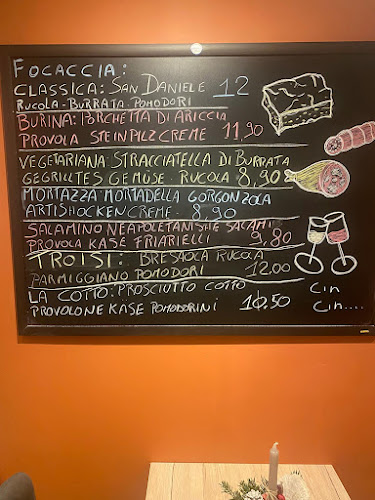 FOCACCIA:
CLASSICA: SAN DANIELE 12
RUCOLA - BURRATA - POMODORI
BURINA: PORCHETTA DI ARICCIA
PROVOLA STEINPILZCREME 11,90
VEGETARIANA: STRACCIATELLA DI BURRATA
GEGRILLTES GEMÜSE - RUCOLA 8,90
MORTAZZA: MORTADELLA GORGONZOLA
ARTISHOCKENCREME - 8,90
SALAMINO NEAPOLETANISHE SALAMI
PROVOLA KASE FRIARIELLI 9,80
TROISI: BRESAOLA RUCOLA
PARMIGGIANO POMODORI 12.00
LA COTTO: PROSCIUTTO COTTO
PROVOLONE KASE POMODORINI 10.50
CIN
CIN....